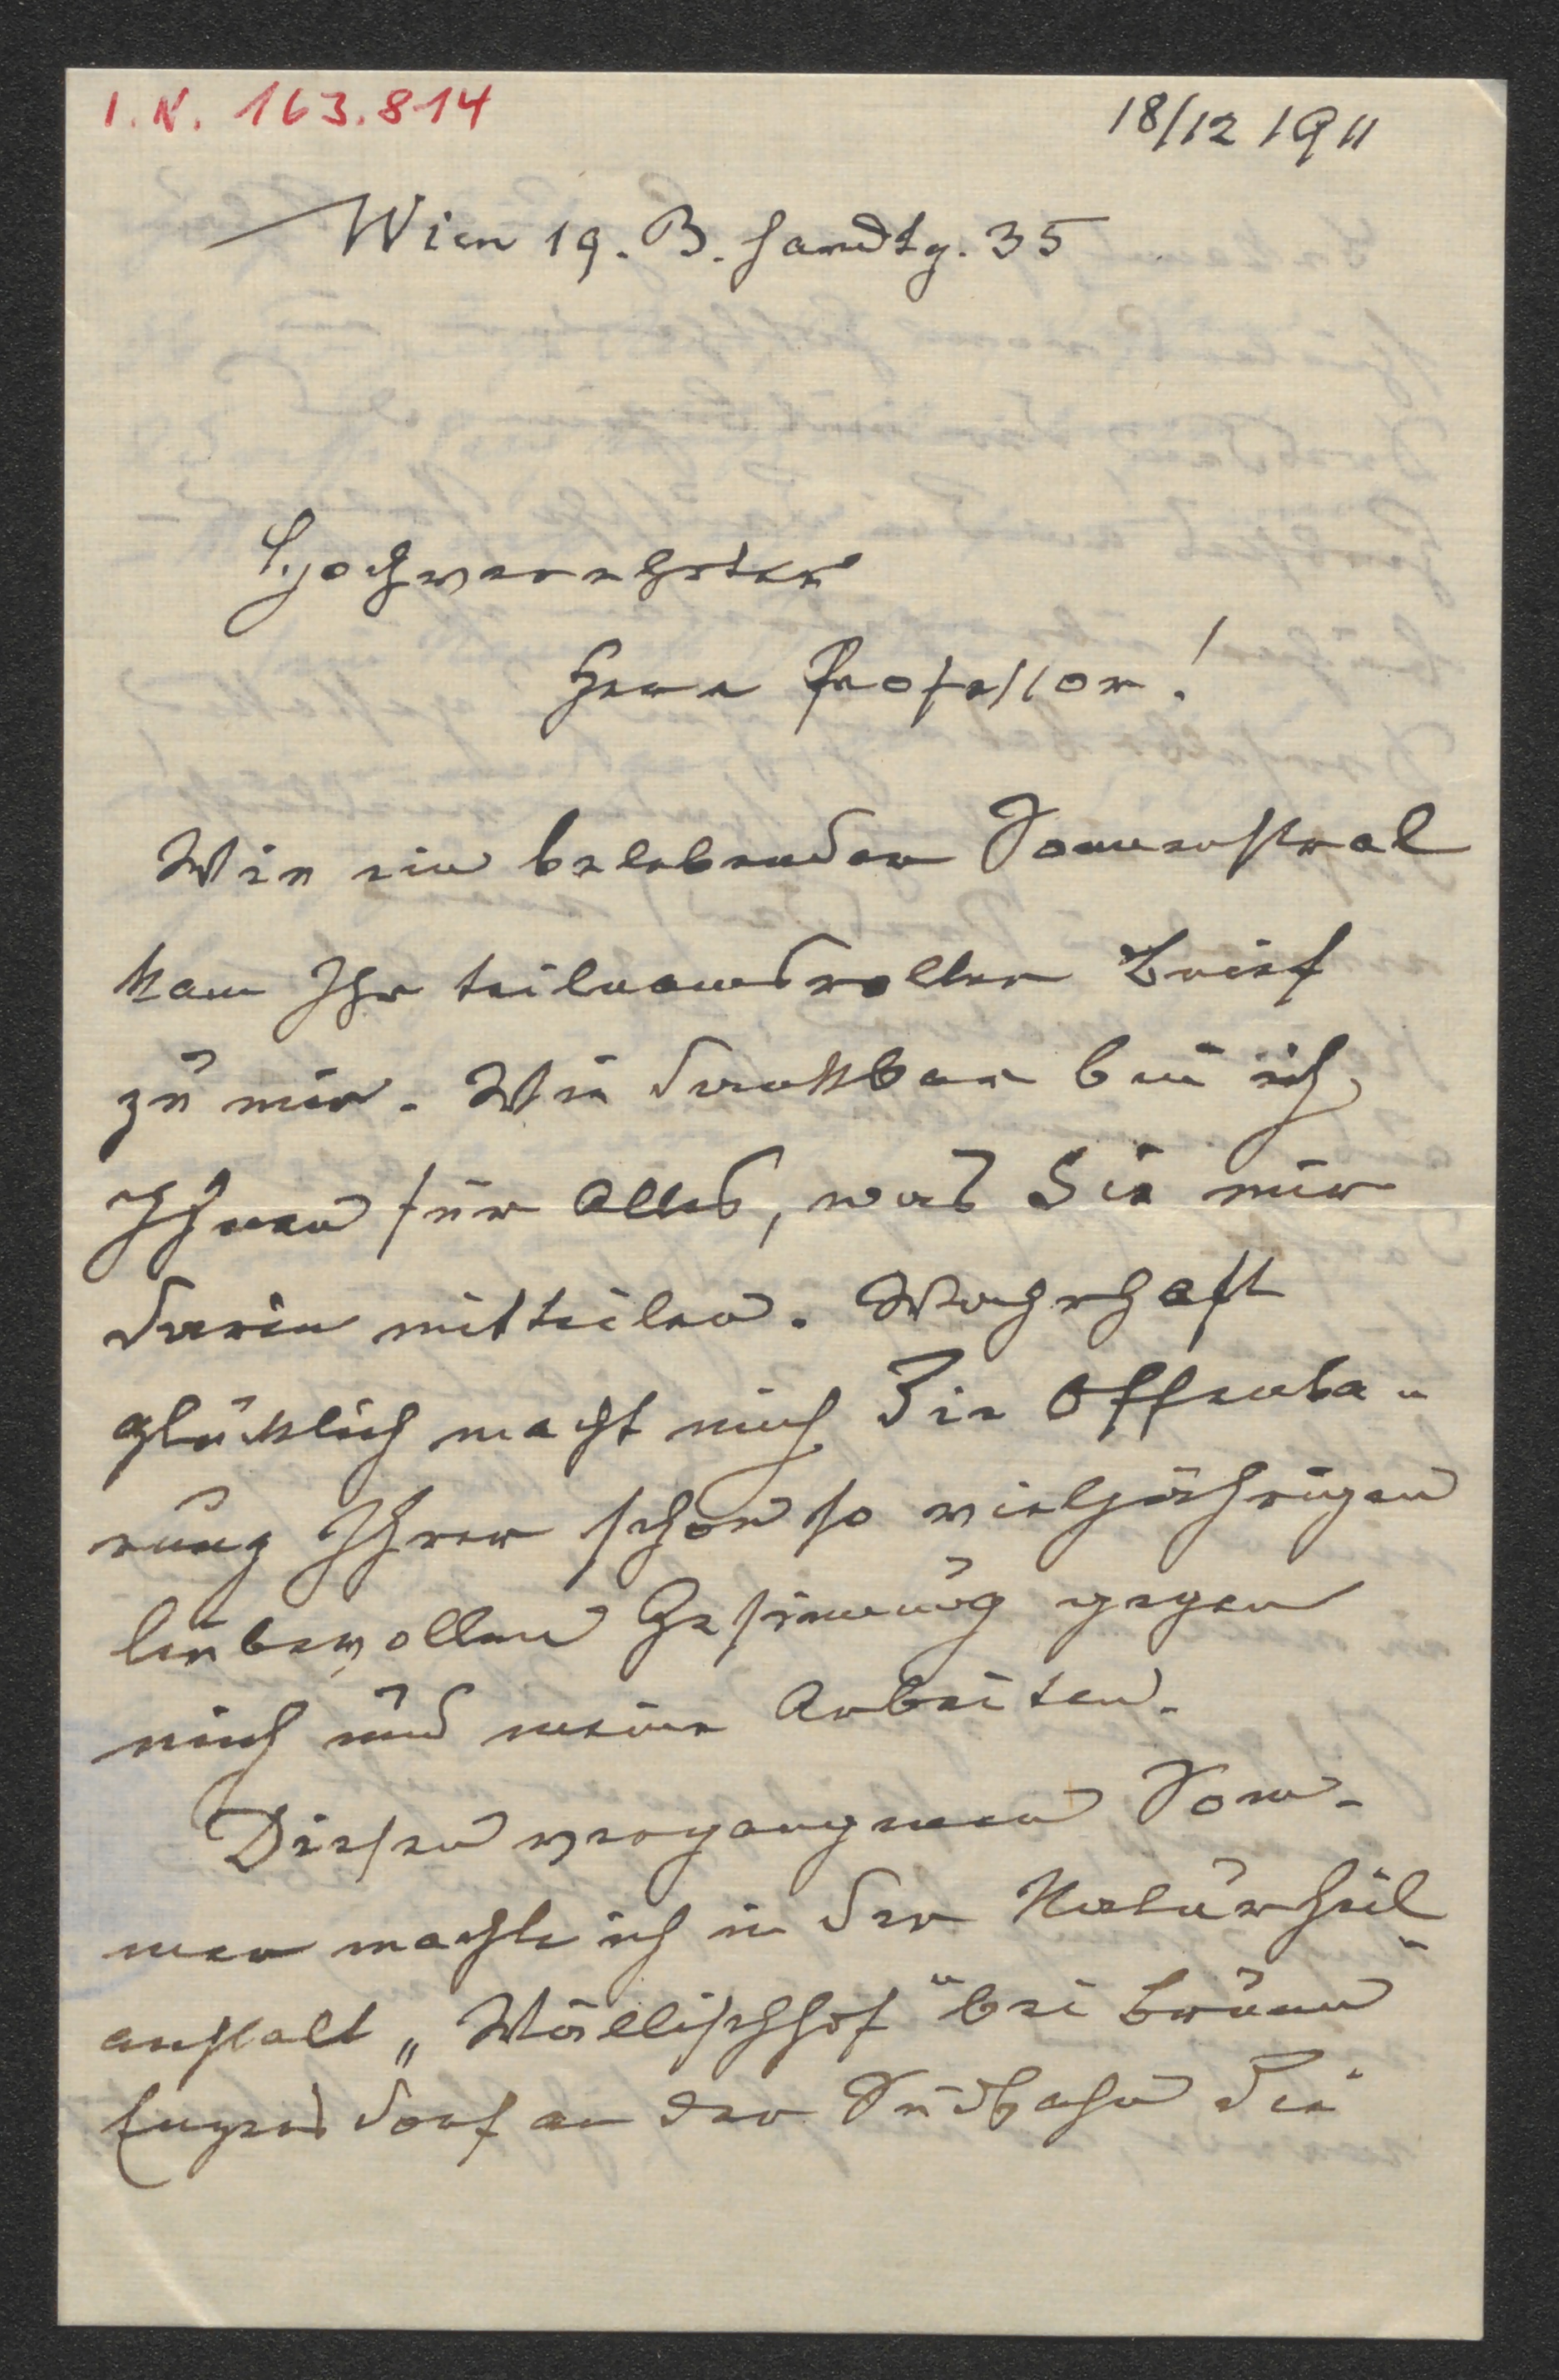 I.N. 163.814
18/12 1911
Wien 19. B. Hardtg. 35
Hochverehrter
Herr Professor!
Wie ein belebender Sonnenstral
kam Ihr teilnamsvoller Brief
zu mir. Wie dankbar bin ich
Ihnen für Alles, was Sie mir
darin mitteilen. Wahrhaft
glücklich macht mich Die Offenba-
rung Ihrer schon so vieljährigen
liebevollen Gesinnung gegen
mich und meine Arbeiten.
Diesen vergangnen Som-
mer machte ich in der Naturheil-
anstalt „Wällischhof“ bei Brunn
Enzersdorf an der Südbahn die